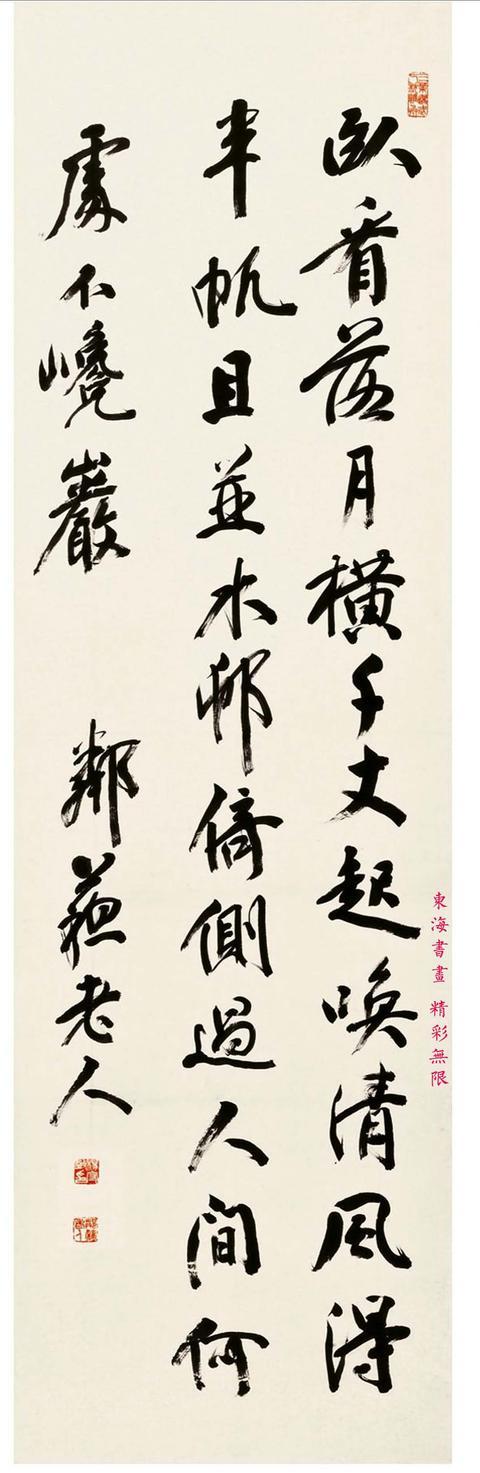 臥看落月橫千丈起喚清風得
半帆且並水邨欹側過人間何
處不巉巖
鄰蘇老人
東海書畫 精彩無限